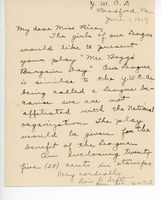 Y. W. C. A.
Bradford, Pa.
June 1, 1917
My dear Miss Rice;
The girls of our League
would like to present
your play "Mrs. Bagg's
Bargain Day." Our League
is similar to the Y.W.C.A.
being called a League be-
cause we are not
affiliated with the National
organization the play
would be given for the
benefit of the League.
Am enclosing twenty
five (25) cents in stamps.
Very cordially